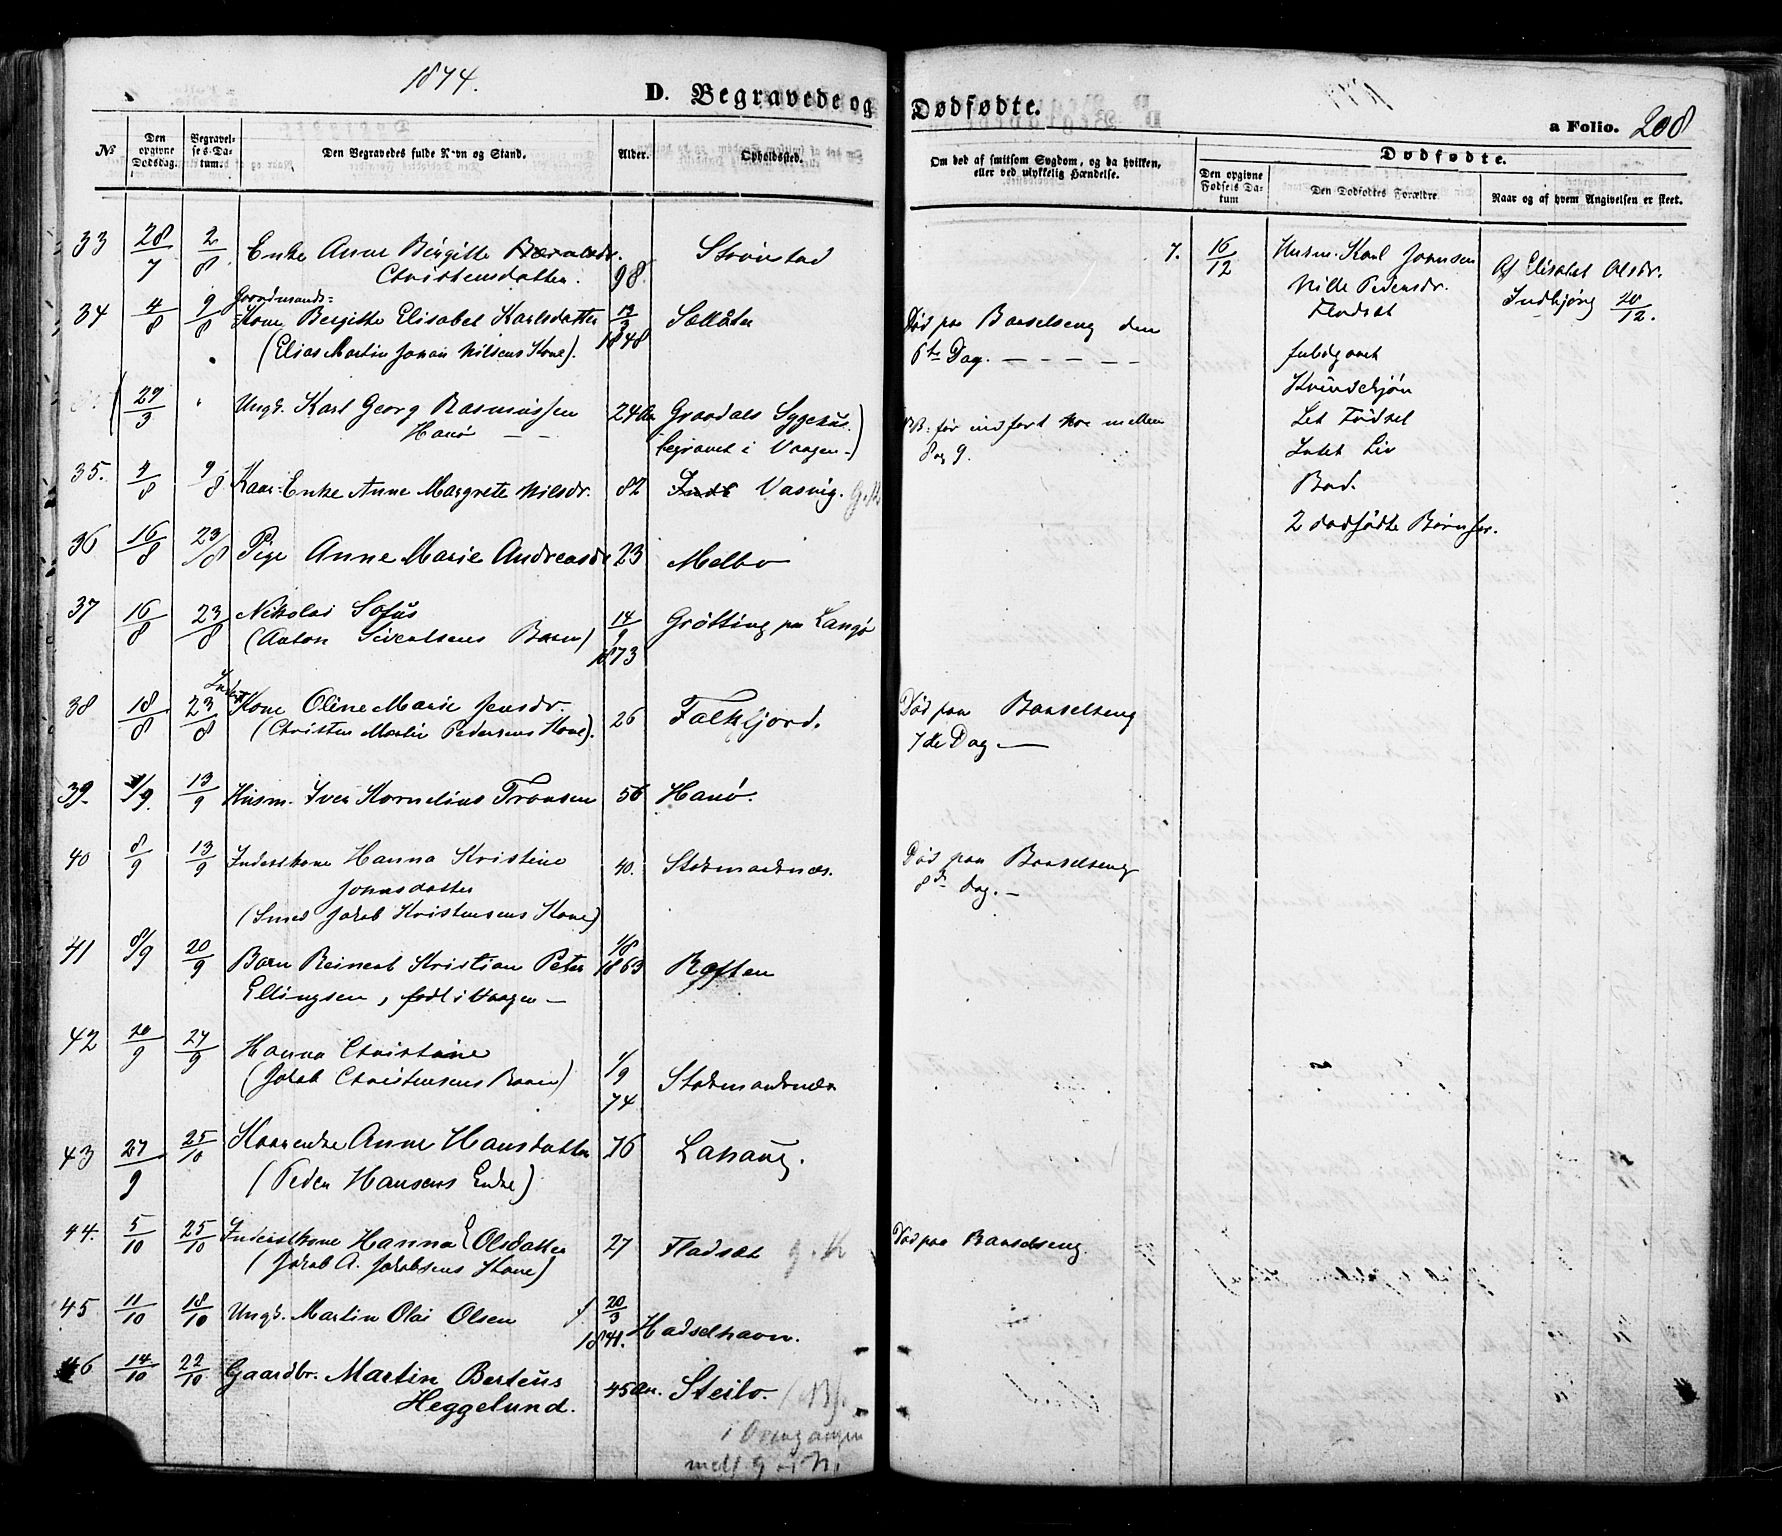 1874.
D. Begravede og Dødfødte.
a Folio. 208
No
Den opgivne Dødsdag.
Begravelses-Datum.
Den Begravedes fulde Navn og Stand.
Alder.
Opholdssted.
Om død af smitsom Sygdom, og da hvilken, eller ved ulykkelig Hændelse.
Dødfødte.
Den opgivne Fødsels Datum
Den Dødfødtes Forældre
Naar og af hvem Angivelsen er skeet.
33 28/7 2/8 Enke Anne Birgitte
Christensdatter. 98.
34 4/8 9/8 Gaardmands-
Kone Bergitte Elisabet Karlsdatter
(Elias Martin Johan Nilsens Kone). 1848
Død paa Barselseng den
6te Dag. — — — — —
29/3 Ungk. Karl Georg Rasmussen 24 Graadals Sygehus.
Hanø — — begravet i Vaagen-)
NB: før indført Noe mellem
8 og 9.
35. 4/8 9/8 Kaar-Enke Anne Margrete Nilsdr. 82 Vasvig. G.K.
36 16/8 23/8 Pige Anne Marie Andreasdr 23 Melbo
37 16/8 23/8 Nikolai Sofus
(Anton Sivertsens Barn) 14/9 1873 Grøtting paa Langø
38 18/8 23/8 Kone Oline Marie Jensdr.
(Christen Martin Pedersens Kone). 26 Falkfjord.
Død paa Barselseng
7de Dag —
39. 1/9. 13/9 Husm. Iver Kornelius Tronsen 56 Hanø.
40 8/9 13/9 Inderstkone Hanna Kristine
Jonasdatter
(Smed Jakob Kristensens Kone) 40. Stokmarknæs.
Død paa Barselseng
8de dag. —
41 8/9 20/9 Barn Reinert Kristian Peter
Ellingsen, født i Vaagen — 1/8 1863 Raften
42 20/9 27/9 Hanna Christine
(Jakob Christensens Barn) 1/9 74 Stokmarknæs
43 27/9 25/10 Kaarenke Anne Hansdatter 76
(Peder Hansens Enke)
44. 5/10 25/10 Inderstkone Hanna E Olsdatter 27 Fladsæt g. K
(Jakob A. Jakobsens Kone)
Død paa Barselseng.
45 11/10 18/10 Ungk. Martin Olai Olsen f 20/3 1841. Hadselhavn.
46 14/10 22/10 Gaardbr. Martin Berteus
Heggelund. 45 Aar. Steilo. (NB.
i Overgangen
mell. G og N.
7. 16/12 Husm. Karl Jonsen
Nille Pedersdr.
Fladsæt
fuldgaaet
Kvindekjøn
Let Fødsel
Intet Liv
Bad.
2 dødfødte Børn før.
Af Elisabet Olsdr.
Indbjørg 20/12.